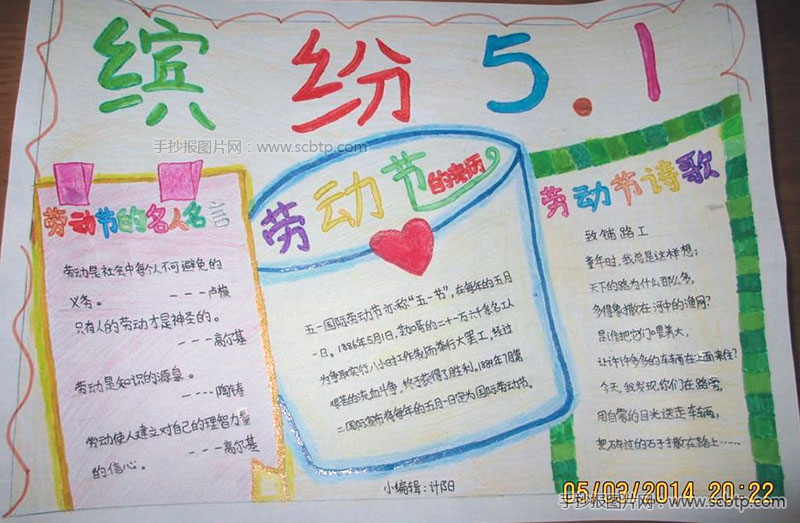 缤纷5.1
手抄报图片网：www.scbtp.com
劳动节的名人名言
劳动是社会中每个人不可避免的
义务。 ---卢梭
只有人的劳动才是神圣的。
---高尔基
劳动是知识的源泉。
----陶铸
劳动使人建立对自己的理智力量
的信心。 ---高尔基
劳动节的来历
五一国际劳动节亦称“五一节”,在每年的五月
一日。1886年5月1日,芝加哥的二十一万六千余名工人
为争取实行八小时工作制而举行大罢工,经过
艰苦的流血斗争,终于获得了胜利。1889年7月第
二国际宣布将每年的五月一日定为国际劳动节。
小编辑：计阳
劳动节诗歌
致铺路工
童年时,我总是这样想：
天下的路为什么那么多,
多得象撒在河中的渔网?
是谁把它们
让许许多多的车辆在上面来往?
今天,我发现你们在路旁,
用自豪的目光送走车辆,
把砸过的石子撒在路上……
05/03/2014 20:22
手抄报图片网：www.scbtp.com